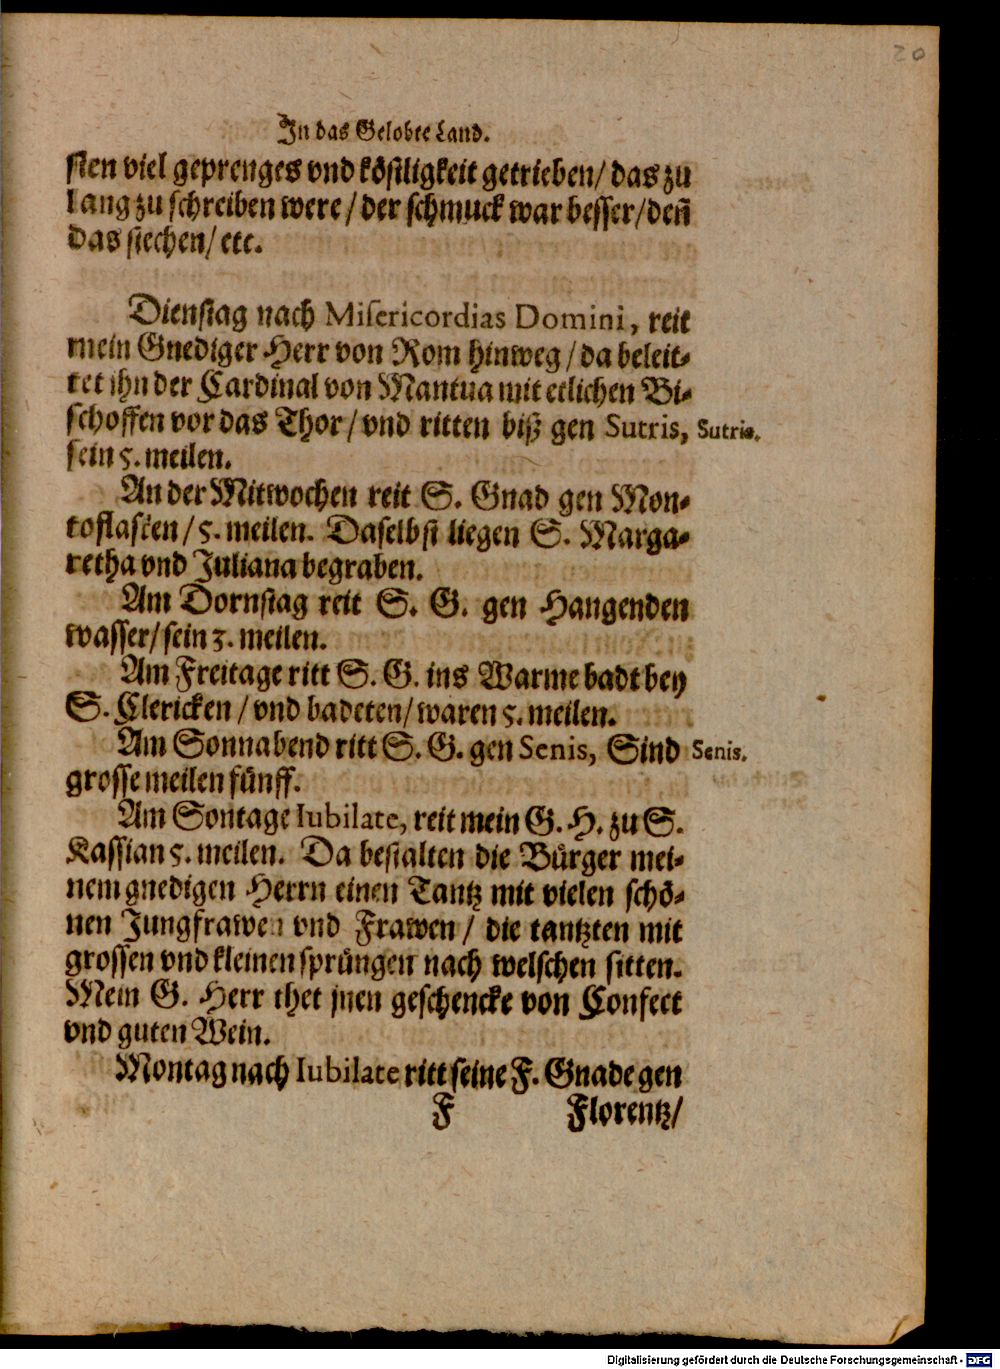 20
In das Gelobte Land.
sten viel geprenges vnd köstligkeit getrieben/ das zu
lang zu schreiben were / der schmuck war besser/ deñ
das siechen/ etc.
Dienstag nach Misericordias Domini, reit
mein Gnediger Herr von Rom hinweg / da beleit-
tet ihn der Cardinal von Mantua mit etlichen Bi-
schoffen vor das Thor / vnd ritten biß gen Sutris, Sutris.
sein 5. meilen.
An der Mitwochen reit S. Gnad gen Mon-
toflascen / 5. meilen. Daselbst liegen S. Marga-
retha vnd Juliana begraben.
Am Dornstag reit S. G. gen Hangenden
wasser/ sein 3. meilen.
Am Freitage ritt S. G. ins Warme badt bey
S. Clericken / vnd badeten/ waren 5. meilen.
Am Sonnabend ritt S. G. gen Senis, Sind Senis.
grosse meilen fünff.
Am Sontage Iubilate, reit mein G. H. zu S.
Kassian 5. meilen. Da bestalten die Bürger mei-
nem gnedigen Herrn einen Tantz mit vielen schö-
nen Jungfrawen vnd Frawen / die tantzten mit
grossen vnd kleinen sprüngen nach welschen sitten.
Mein G. Herr thet jnen geschencke von Confect
vnd guten Wein.
Montag nach Iubilate ritt seine F. Gnade gen
F Florentz/
Digitalisierung gefördert durch die Deutsche Forschungsgemeinschaft - DFG